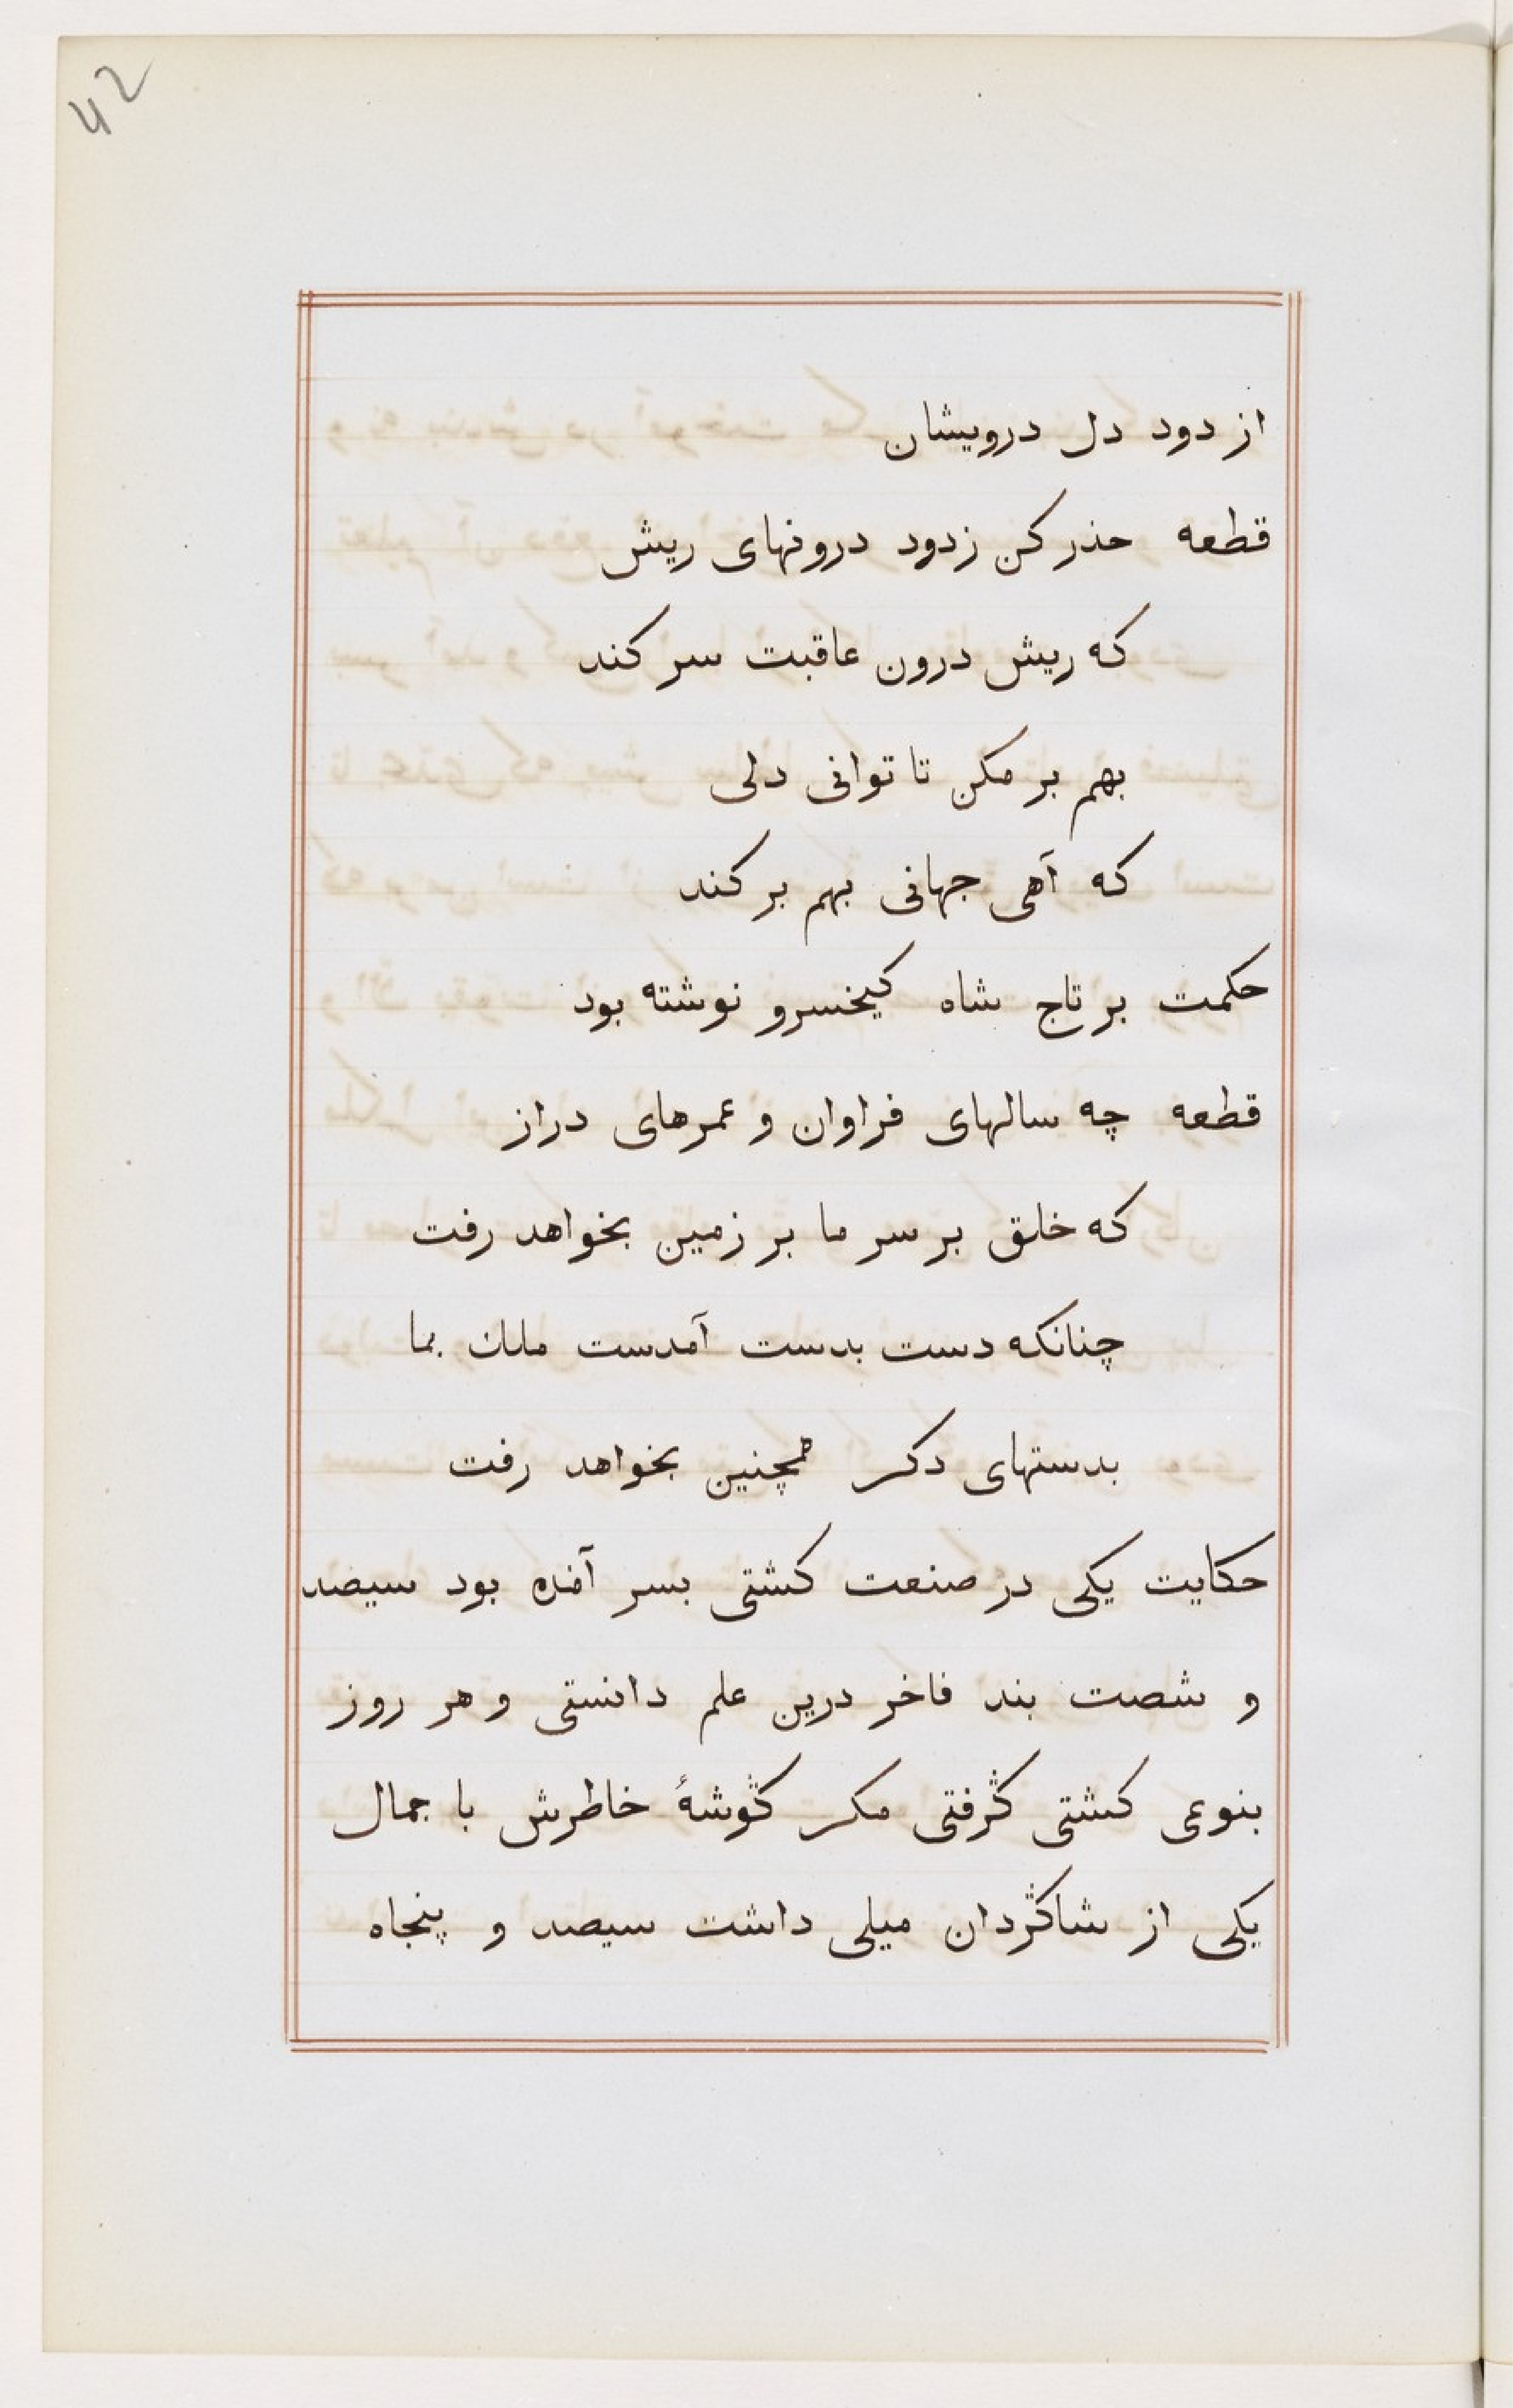 42
از دود دل درویشان
قطعه حذر کن زدود درونهای ریش
که ریش درون عاقبت سر کند
بهم بر مکن تا توانی دلی
که آهی جهانی بهم بر کند
حکمت بر تاج شاه کیخسرو نوشته بود
قطعه چه سالهای فراوان و عمرهای دراز
که خلق بر سر ما بر زمین بخواهد رفت
چنانکه دست بدست آمدست ملک بما
بدستهای دکر همچنین بخواهد رفت
حکایت یکی در صنعت کشتی بسر آمده بود سیصد
و شصت بند فاخر درین علم دانستی و هر روز
بنوعی کشتی ڭرفتی مکر ڭوشهٔ خاطرش با جمال
یکی از شاڭردان میلی داشت سیصد و پنجاه